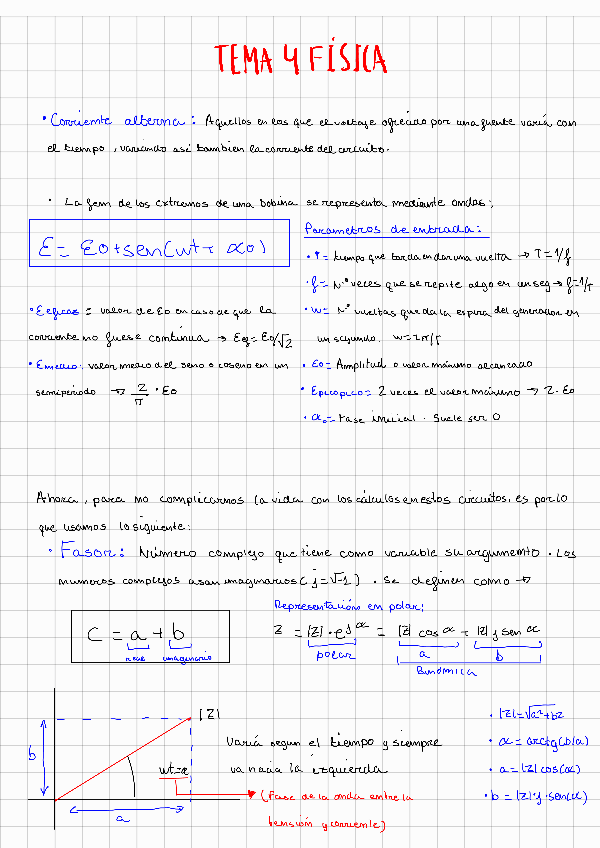 TEMA 4 FÍSICA
• Corriente alterna: Aquellos en los que el voltaje ofrecido por una fuente varía con
el tiempo, variando así también la corriente del circuito.
• La fem de los extremos de una bobina se representa mediante ondas:
Ɛ = Ɛ0 + sen(wt + α0)
Parametros de entrada:
• T = tiempo que tarda en dar una vuelta → T = 1/f
• f = Nº veces que se repite algo en un seg → f = 1/T
• w = Nº vueltas que da la espira del generador en
un segundo. w = 2π/T
• Ɛ0 = Amplitud o valor máximo alcanzado
• Epicopico = 2 veces el valor máximo → 2 · Ɛ0
• α0 = Fase inicial. Suele ser 0
• Eeficas = valor de Ɛ0 en caso de que la
corriente no fuese continua → Eeg = Ɛ0/√2
• Emedio: valor medio del seno o coseno en un
semiperiodo → 2/π · Ɛ0
Ahora, para no complicarnos la vida con los cálculos en estos circuitos, es por lo
que usamos lo siguiente:
• Fasor: Número complejo que tiene como variable su argumento. Los
numeros complejos usan imaginarios (j = √-1). Se definen como →
C = a + b
real imaginario
Representación en polar:
Z = |Z| · e^jα = |Z| cos α + |Z| j sen α
polar a b
Binómica
|Z|
b
wt = α
a
Varía segun el tiempo y siempre
va hacia la izquierda
(Fase de la onda entre la
tensión y corriente)
• |Z| = √a² + b2
• α = arctg(b/a)
• a = |Z| cos(α)
• b = |Z| j · sen(α)